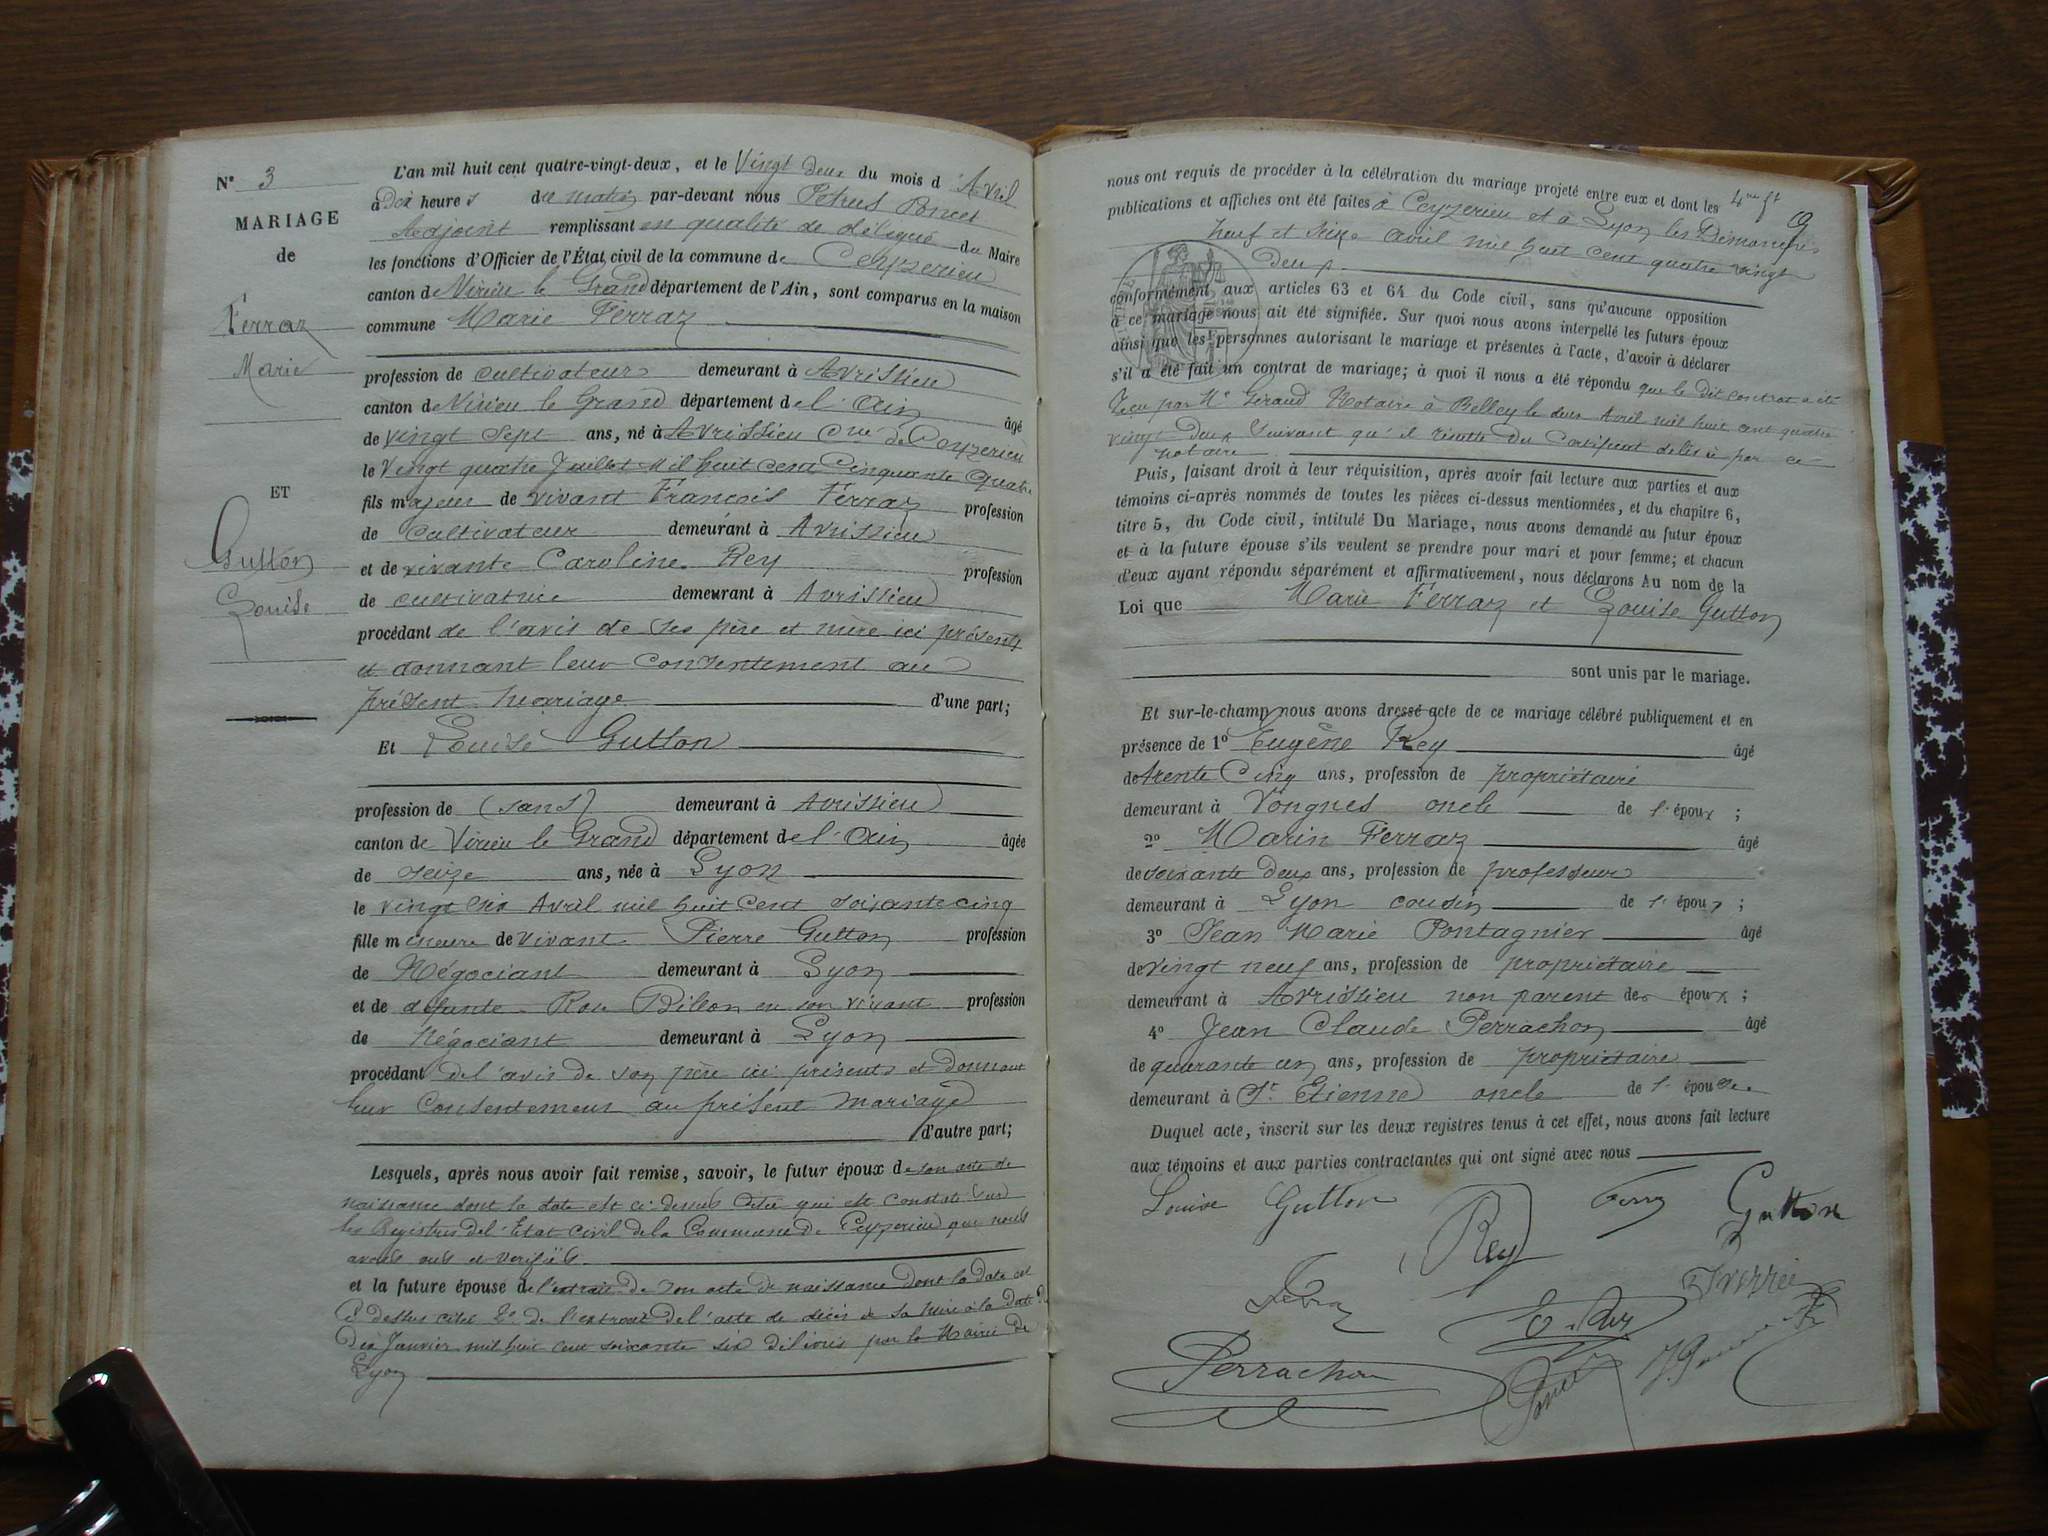 N° 3
MARIAGE
de
Ferraz
Marie
ET
Gutton
Louise
L'an mil huit cent quatre-vingt-deux, et le Vingt deux du mois d'Avril
à Dix heures du matin par-devant nous Pétrus Poncet
Adjoint remplissant en qualité de délégué du Maire
les fonctions d'Officier de l'État civil de la commune de Ceyzerieu
canton de Virieu le Grand département de l'Ain, sont comparus en la maison
commune Marie Ferraz
profession de cultivateur demeurant à Avrissieu
canton de Virieu le Grand département de l'Ain âgé
de vingt sept ans, né à Avrissieu Cne de Ceyzerieu
le Vingt quatre Juillet Mil huit cent Cinquante Quatre
fils majeur de vivant François Ferraz profession
de cultivateur demeurant à Avrissieu
et de vivante Caroline Rey profession
de cultivatrice demeurant à Avrissieu
procédant de l'avis de ses père et mère ici présents
et donnant leur consentement au
présent mariage d'une part;
Et Louise Gutton
profession de (sans) demeurant à Avrissieu
canton de Virieu le Grand département de l'Ain âgée
de seize ans, née à Lyon
le vingt six Avril mil huit Cent soixante cinq
fille mineure de vivant Pierre Gutton profession
de Négociant demeurant à Lyon
et de défunte en son vivant profession
de Négociant demeurant à Lyon
procédant de l'avis de son père ici présents et donnant
leur Consentement au présent Mariage
d'autre part;
Lesquels, après nous avoir fait remise, savoir, le futur époux de son acte de
naissance dont la date est ci-dessus citée qui est constaté sur
les Registres de l'Etat Civil de la Commune de Ceyzerieu que nous
avons vus et verifiés.
et la future épouse de l'extrait de son acte de naissance dont la date est
ci dessus citée 2° de l'extrait de l'acte de décès de sa mère à la date du
Dix Janvier mil huit cent soixante six délivrés par la Mairie de
Lyon
9
nous ont requis de procéder à la célébration du mariage projeté entre eux et dont les
publications et affiches ont été faites à Ceyzerieu et à Lyon les Dimanches
neuf et seize avril mil huit cent quatre vingt
deux
conformément aux articles 63 et 64 du Code civil, sans qu'aucune opposition
à ce mariage nous ait été signifiée. Sur quoi nous avons interpellé les futurs époux
ainsi que les personnes autorisant le mariage et présentes à l'acte, d'avoir à déclarer
s'il a été fait un contrat de mariage; à quoi il nous a été répondu que le dit contrat a été
reçu par Me Giraud Notaire à Belley le deux Avril mil huit cent quatre
vingt deux suivant qu'il résulte du Certificat délivré par ce
notaire
Puis, faisant droit à leur réquisition, après avoir fait lecture aux parties et aux
témoins ci-après nommés de toutes les pièces ci-dessus mentionnées, et du chapitre 6,
titre 5, du Code civil, intitulé Du Mariage, nous avons demandé au futur époux
et à la future épouse s'ils veulent se prendre pour mari et pour femme; et chacun
d'eux ayant répondu séparément et affirmativement, nous déclarons Au nom de la
Loi que Marie Ferraz et Louise Gutton
sont unis par le mariage.
Et sur-le-champ nous avons dressé acte de ce mariage célébré publiquement et en
présence de 1° Eugène Rey âgé
de trente Cinq ans, profession de propriétaire
demeurant à Vongnes oncle de l'époux ;
2° Marin Ferraz âgé
de soixante deux ans, profession de professeur
demeurant à Lyon cousin de l'époux ;
3° Jean Marie Pontagnier âgé
de vingt neuf ans, profession de propriétaire
demeurant à Avrissieu non parent des époux ;
4° Jean Claude Perrachon âgé
de quarante un ans, profession de propriétaire
demeurant à St Etienne oncle de l'épouse.
Duquel acte, inscrit sur les deux registres tenus à cet effet, nous avons fait lecture
aux témoins et aux parties contractantes qui ont signé avec nous
Louise Gutton Rey Gutton
E. Rey
Perrachon Poncet